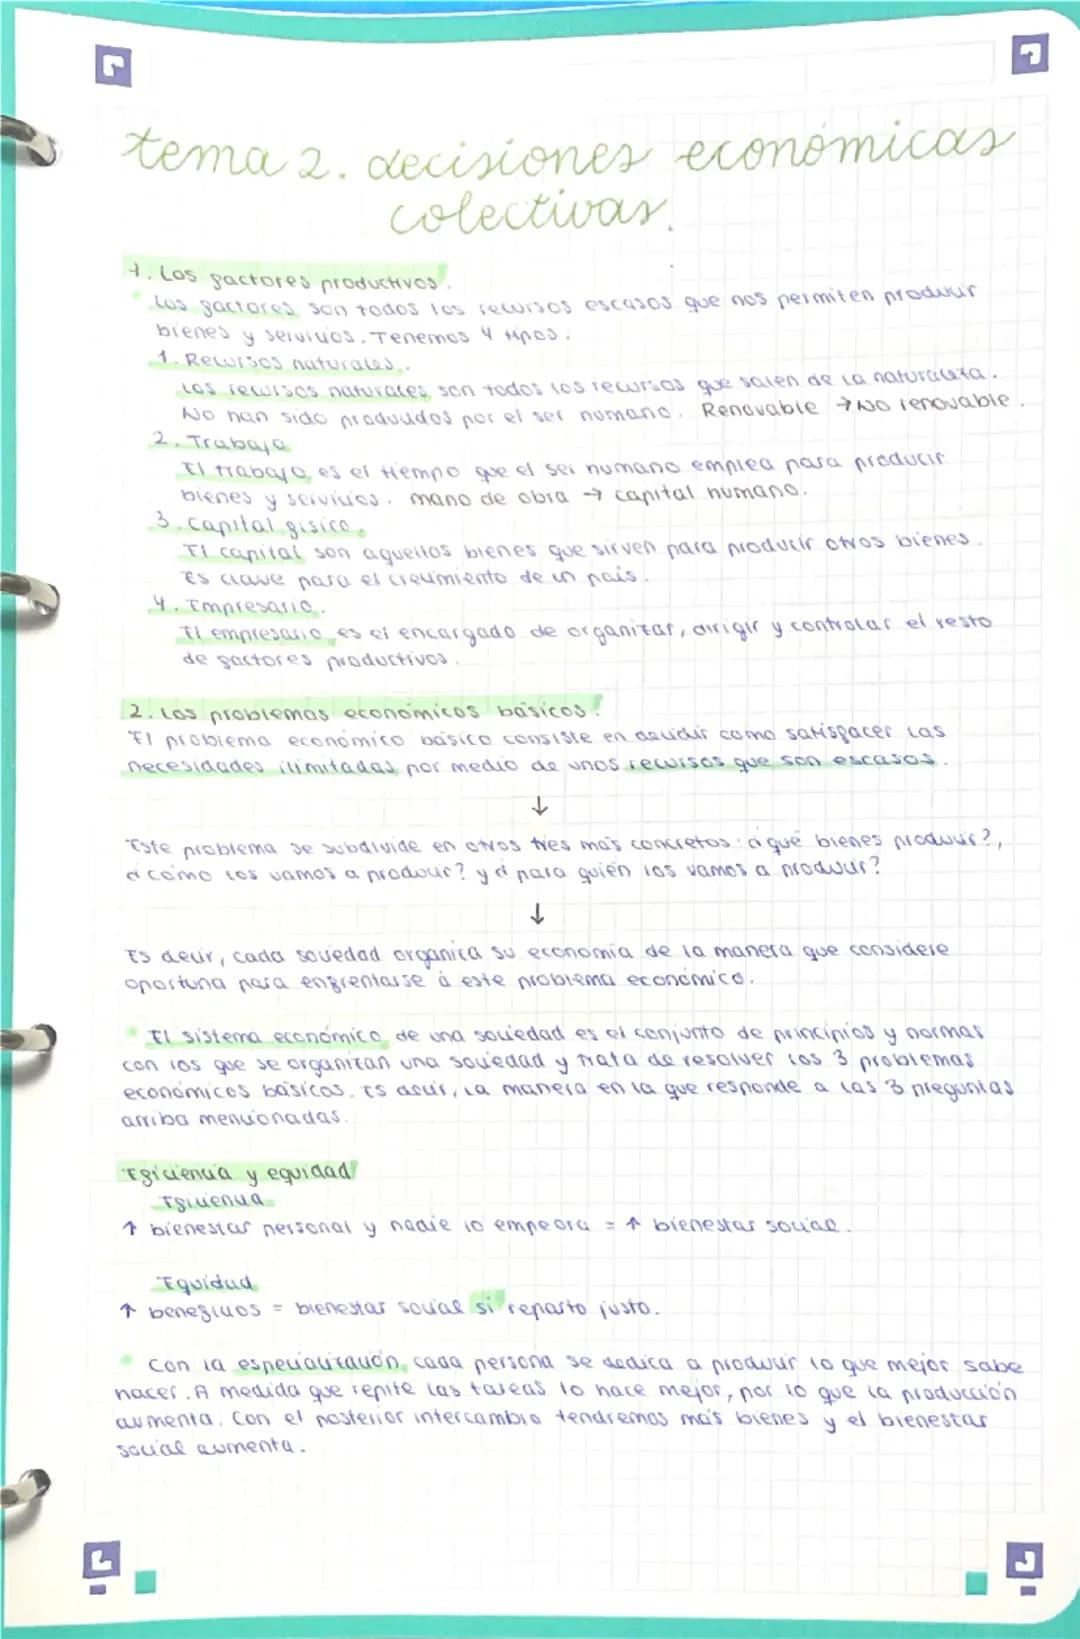 tema 2. decisiones económicas
colectivas.
1. Los factores productivos.
Los factores son todos los recursos escasos que nos permiten producir
bienes y servicios. Tenemos 4 tipos.
1. Recursos naturales.
Los recursos naturales son todos los recursos que salen de la naturaleza.
No han sido producidos por el ser humano. Renovable → No renovable.
2. Trabajo
El trabajo es el tiempo que el ser humano emplea para producir
bienes y servicios. mano de obra → capital humano.
3. Capital físico.
El capital son aquellos bienes que sirven para producir otros bienes.
Es clave para el crecimiento de un país.
4. Empresario.
El empresario es el encargado de organizar, dirigir y controlar el resto
de factores productivos.
2. Los problemas económicos básicos.
El problema económico básico consiste en decidir como satisfacer las
necesidades ilimitadas por medio de unos recursos que son escasos.
↓
Este problema se subdivide en otros tres más concretos: ¿qué bienes producir?,
¿cómo los vamos a producir? y ¿para quién los vamos a producir?
↓
Es decir, cada sociedad organiza su economía de la manera que considere
oportuna para enfrentarse a este problema económico.
El sistema económico de una sociedad es el conjunto de principios y normas
con los que se organizan una sociedad y trata de resolver los 3 problemas
económicos básicos. Es decir, la manera en la que responde a las 3 preguntas
arriba mencionadas.
Eficiencia y equidad
Eficiencia
↑ bienestar personal y nadie lo empeora = ↑ bienestar social.
Equidad
↑ beneficios = bienestar social si reparto justo.
Con la especialización, cada persona se dedica a producir lo que mejor sabe
hacer. A medida que repite las tareas lo hace mejor, por lo que la producción
aumenta. Con el posterior intercambio tendremos más bienes y el bienestar
social aumenta.